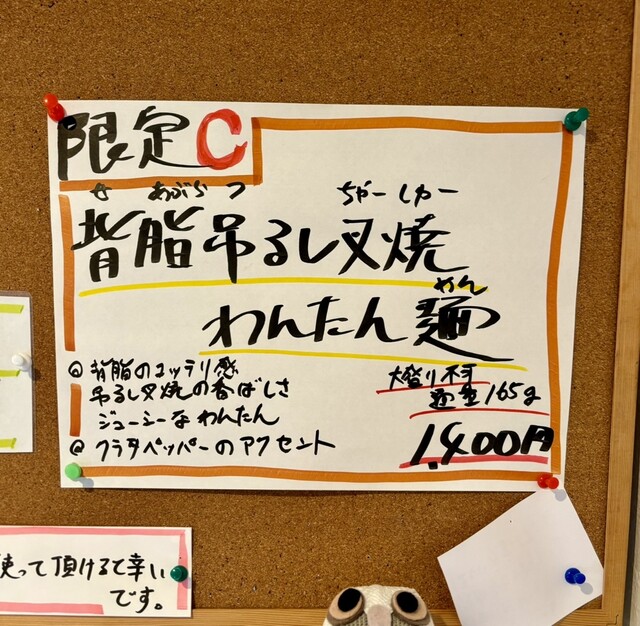 限定C
せ あぶら つ ちゃーしゅー
背脂吊るし叉焼
めん
わんたん麺
◎ 背脂のコッテリ感
吊るし叉焼の香ばしさ
ジューシーなわんたん
◎ クラタペッパーのアクセント
大盛り不可
麺量165g
1,400円
使って頂けると幸い
です。